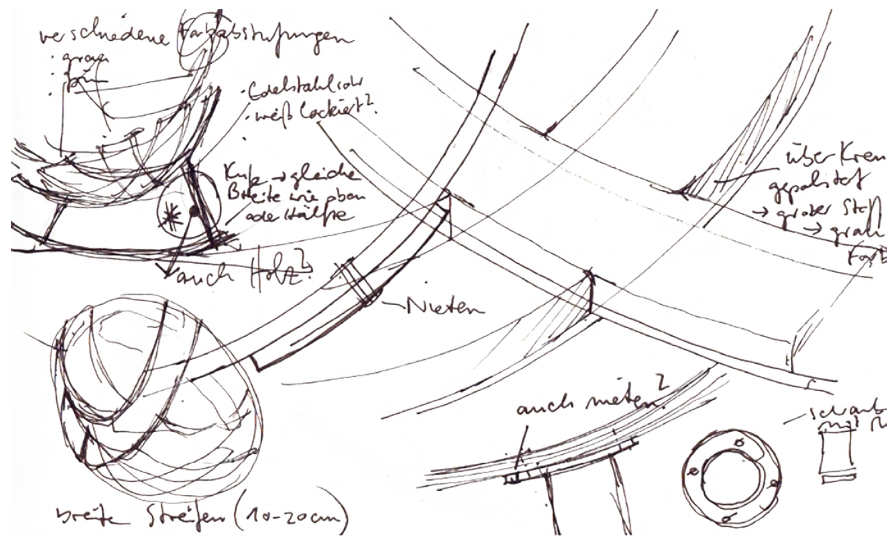 verschiedene Farbabstufungen
· grau
· grün
· Edelstahlrohr
· weiß lackiert?
Kufe → gleiche
Breite wie oben
oder Hälfte
auch Holz?
über Kreuz
gepolstert
→ grober Stoff
→ grau
Nieten
auch nieten?
breite Streifen (10-20cm)